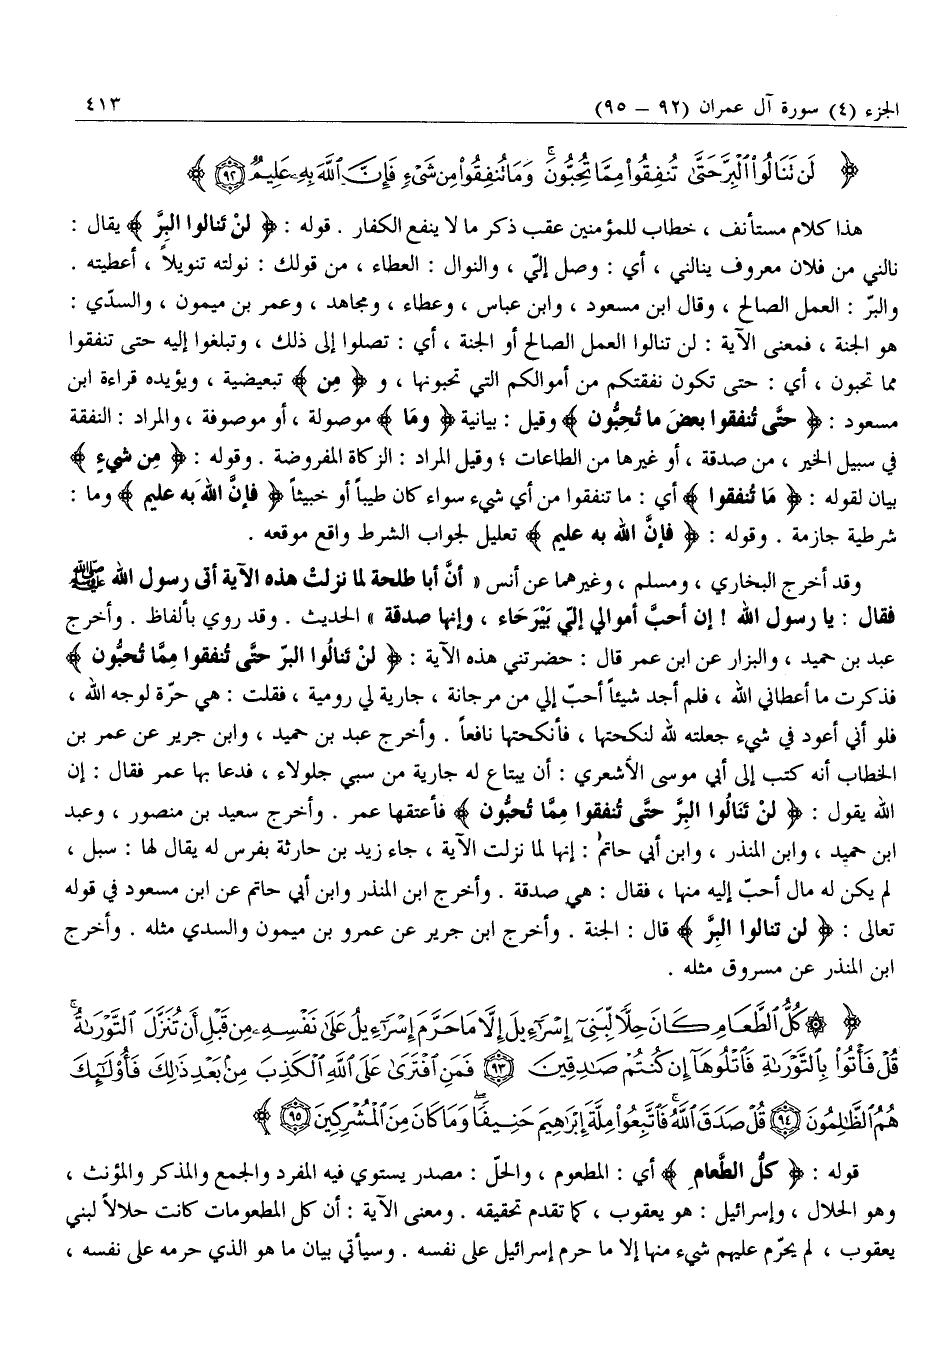 الجزء (٤) سورة آل عمران (٩٢ – ٩٥) ٤١٣
﴿ لَن تَنَالُوا۟ ٱلْبِرَّ حَتَّىٰ تُنفِقُوا۟ مِمَّا تُحِبُّونَ ۚ وَمَا تُنفِقُوا۟ مِن شَىْءٍ فَإِنَّ ٱللَّهَ بِهِۦ عَلِيمٌ ٩٢ ﴾
هذا كلام مستأنف ، خطاب للمؤمنين عقب ذكر ما لا ينفع الكفار . قوله : ﴿ لنْ تَنالوا البِرَّ ﴾ يقال :
نالني من فلان معروف ينالني ، أي : وصل إليّ ، والنوال : العطاء ، من قولك : نولته تنويلاً ، أعطيته .
والبرّ : العمل الصالح ، وقال ابن مسعود ، وابن عباس ، وعطاء ، ومجاهد ، وعمر بن ميمون ، والسدّي :
هو الجنة ، فمعنى الآية : لن تنالوا العمل الصالح أو الجنة ، أي : تصلوا إلى ذلك ، وتبلغوا إليه حتى تنفقوا
مما تحبون ، أي : حتى تكون نفقتكم من أموالكم التي تحبونها ، و ﴿ مِن ﴾ تبعيضية ، ويؤيده قراءة ابن
مسعود : ﴿ حتَّى تُنفقوا بعضَ ما تُحِبُّون ﴾ وقيل : بيانية ﴿ ومَا ﴾ موصولة ، أو موصوفة ، والمراد : النفقة
في سبيل الخير ، من صدقة ، أو غيرها من الطاعات ؛ وقيل المراد : الزكاة المفروضة . وقوله : ﴿ مِن شيءٍ ﴾
بيان لقوله : ﴿ مَا تُنفقوا ﴾ أي : ما تنفقوا من أي شيء سواء كان طيباً أو خبيثاً ﴿ فإنَّ اللهَ به عليم ﴾ وما :
شرطية جازمة . وقوله : ﴿ فإنَّ الله به عليم ﴾ تعليل لجواب الشرط واقع موقعه .
وقد أخرج البخاري ، ومسلم ، وغيرهما عن أنس « أنَّ أبا طلحة لما نزلتْ هذه الآية أتى رسول الله ﷺ
فقال : يا رسول الله ! إن أحبَّ أموالي إليّ بَيْرَحَاء ، وإنها صدقة » الحديث . وقد روي بألفاظ . وأخرج
عبد بن حميد ، والبزار عن ابن عمر قال : حضرتني هذه الآية : ﴿ لنْ تَنالُوا البرّ حتَّى تُنفقوا مِمَّا تُحبُّون ﴾
فذكرت ما أعطاني الله ، فلم أجد شيئاً أحبّ إلي من مرجانة ، جارية لي رومية ، فقلت : هي حرّة لوجه الله ،
فلو أني أعود في شيء جعلته لله لنكحتها ، فأنكحتها نافعاً . وأخرج عبد بن حميد ، وابن جرير عن عمر بن
الخطاب أنه كتب إلى أبي موسى الأشعري : أن يبتاع له جارية من سبي جلولاء ، فدعا بها عمر فقال : إن
الله يقول : ﴿ لنْ تَنَالُوا البِرَّ حتَّى تُنفقوا مِمَّا تُحبُّون ﴾ فأعتقها عمر . وأخرج سعيد بن منصور ، وعبد
ابن حميد ، وابن المنذر ، وابن أبي حاتم : إنها لما نزلت الآية ، جاء زيد بن حارثة بفرس له يقال لها : سبل ،
لم يكن له مال أحبّ إليه منها ، فقال : هي صدقة . وأخرج ابن المنذر وابن أبي حاتم عن ابن مسعود في قوله
تعالى : ﴿ لن تنالوا البِرَّ ﴾ قال : الجنة . وأخرج ابن جرير عن عمرو بن ميمون والسدي مثله . وأخرج
ابن المنذر عن مسروق مثله .
﴿ ۞ كُلُّ ٱلطَّعَامِ كَانَ حِلًّا لِّبَنِىٓ إِسْرَٰٓءِيلَ إِلَّا مَا حَرَّمَ إِسْرَٰٓءِيلُ عَلَىٰ نَفْسِهِۦ مِن قَبْلِ أَن تُنَزَّلَ ٱلتَّوْرَىٰةُ ۗ
قُلْ فَأْتُوا۟ بِٱلتَّوْرَىٰةِ فَٱتْلُوهَآ إِن كُنتُمْ صَـٰدِقِينَ ٩٣ فَمَنِ ٱفْتَرَىٰ عَلَى ٱللَّهِ ٱلْكَذِبَ مِنۢ بَعْدِ ذَٰلِكَ فَأُو۟لَـٰٓئِكَ
هُمُ ٱلظَّـٰلِمُونَ ٩٤ قُلْ صَدَقَ ٱللَّهُ ۗ فَٱتَّبِعُوا۟ مِلَّةَ إِبْرَٰهِيمَ حَنِيفًا ۖ وَمَا كَانَ مِنَ ٱلْمُشْرِكِينَ ٩٥ ﴾
قوله : ﴿ كلُّ الطَّعامِ ﴾ أي : المطعوم ، والحلّ : مصدر يستوي فيه المفرد والجمع والمذكر والمؤنث ،
وهو الحلال ، وإسرائيل : هو يعقوب ، كما تقدم تحقيقه . ومعنى الآية : أن كل المطعومات كانت حلالاً لبني
يعقوب ، لم يحرّم عليهم شيء منها إلا ما حرم إسرائيل على نفسه . وسيأتي بيان ما هو الذي حرمه على نفسه ،